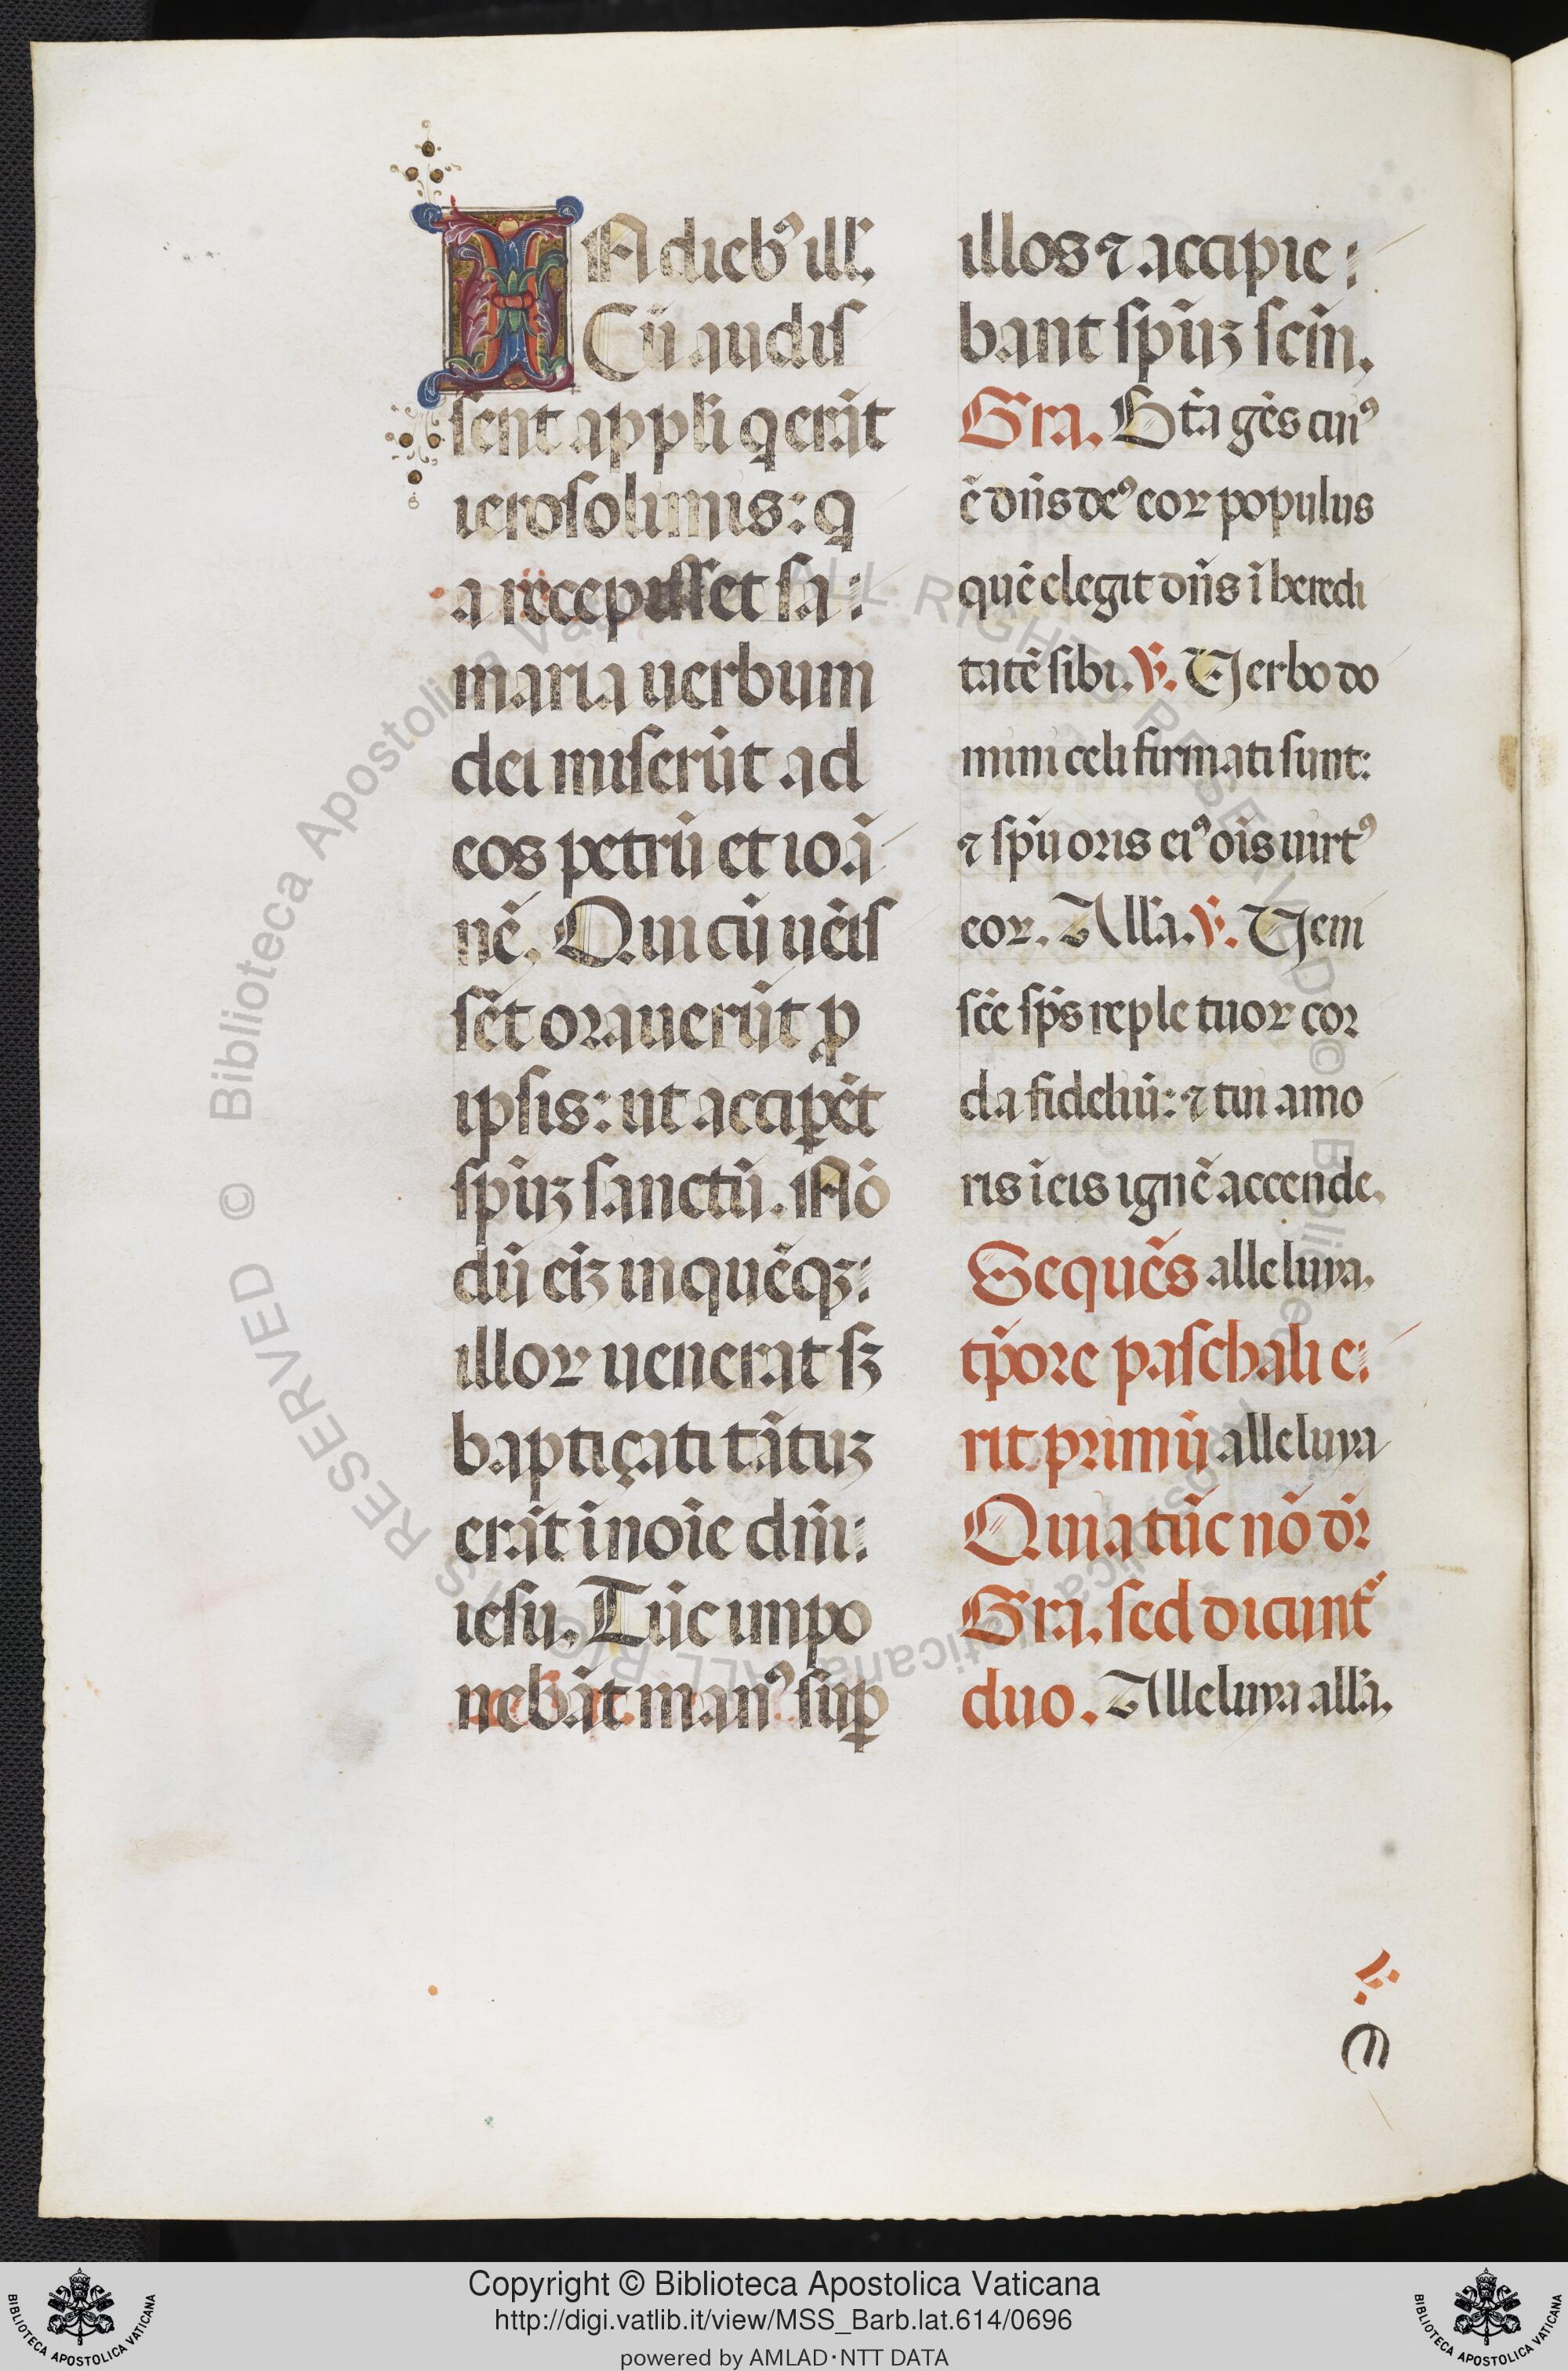 IN dieb⁹ ill'.
Cū audiſ
ſent appli q̄ erāt
ieroſolimis: q
a recepiſſet ſa:
maria uerbum
dei miſerūt ad
eos petrū et ioā
nē. Qui cū uēiſ
ſēt orauerūt ꝓ
ipſis: ut acciꝑēt
ſpūꝫ ſanctū. Nō
dū eīꝫ in quēqꝫ:
illoꝝ uenerat ſꝫ
baptiçati tātuꝫ
erāt ī noīe dn̄i:
ieſu. Tūc impo
nebāt man⁹ ſuꝑ
illos ⁊ accipie:
bant ſpūꝫ ſcm̄.
Gra. Btā gēs cui⁹
ē dn̄s de⁹ eoꝝ populus
quē elegit dn̄s ī heredi
tatē ſibi. ℣. Uerbo do
mini celi firmati ſunt:
⁊ ſpū oris ei⁹ oīs uirt⁹
eoꝝ. All'a. ℣. Ueni
ſcē ſps̄ reple tuoꝝ cor
da fideliū: ⁊ tui amo
ris ī eis ignē accende.
Sequēs alleluya.
tp̄ore paſchali e:
rit primū alleluya
Quia tūc nō dr̄
Gra. ſed dicunt'
duo. Alleluya all'a.
Copyright © Biblioteca Apostolica Vaticana
http://digi.vatlib.it/view/MSS_Barb.lat.614/0696
powered by AMLAD·NTT DATA
BIBLIOTECA APOSTOLICA VATICANA
BIBLIOTECA APOSTOLICA VATICANA
ALL RIGHTS RESERVED © Biblioteca Apostolica Vaticana
ALL RIGHTS RESERVED © Biblioteca Apostolica Vaticana